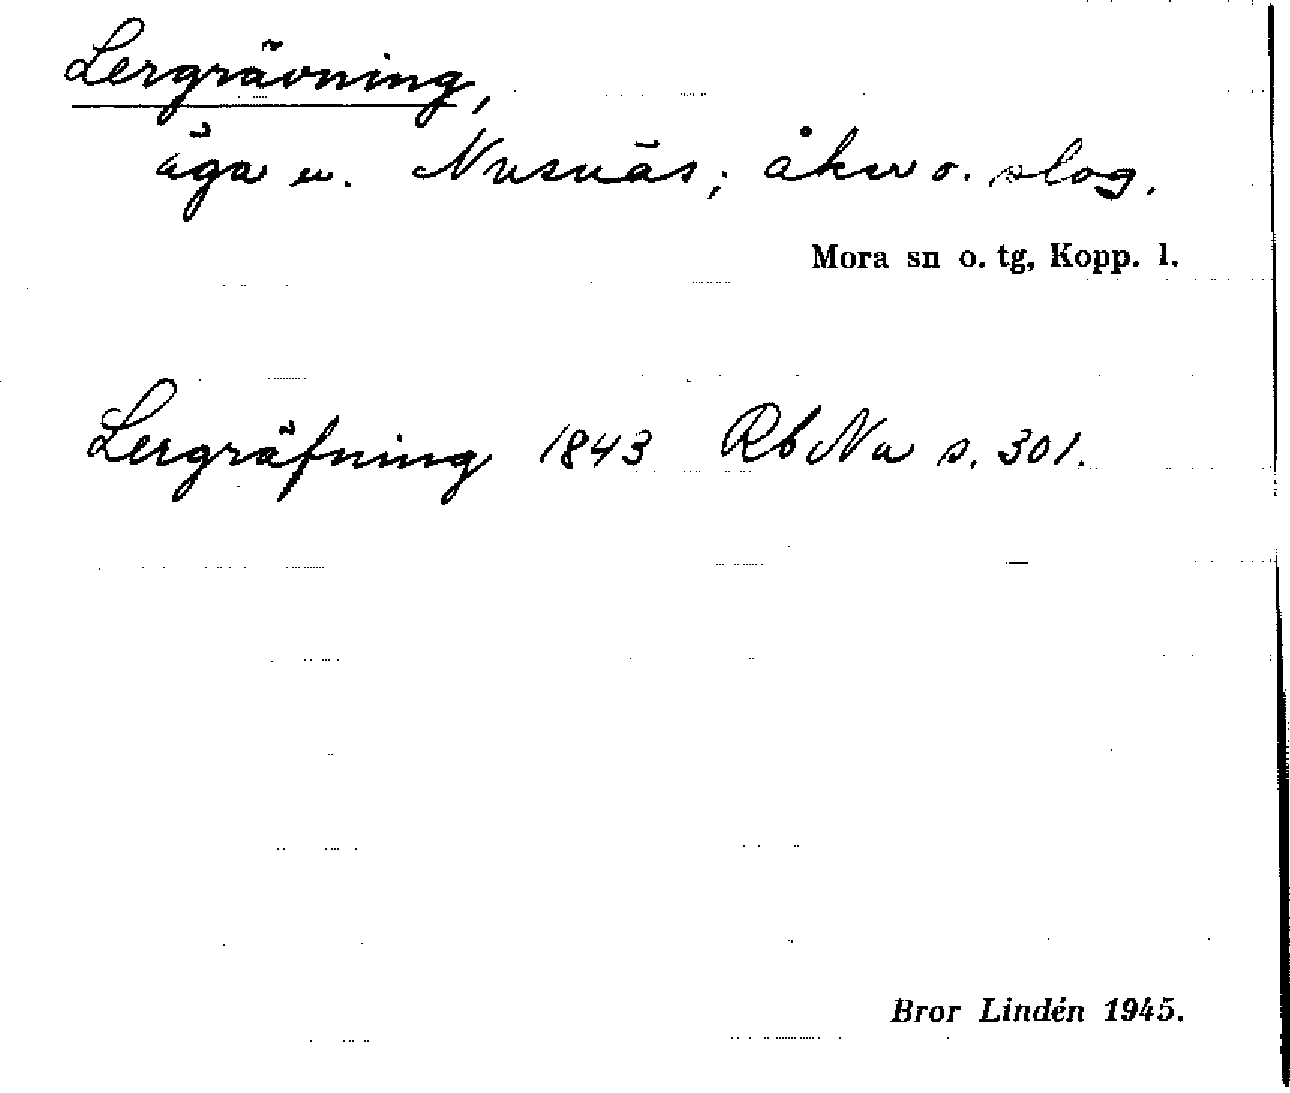 Lergrävning,
äga u. Nusnäs; åker o. slog.
Mora sn o. tg, Kopp. l.
Lergräfning 1843 Rb Na s. 301.
Bror Lindén 1945.